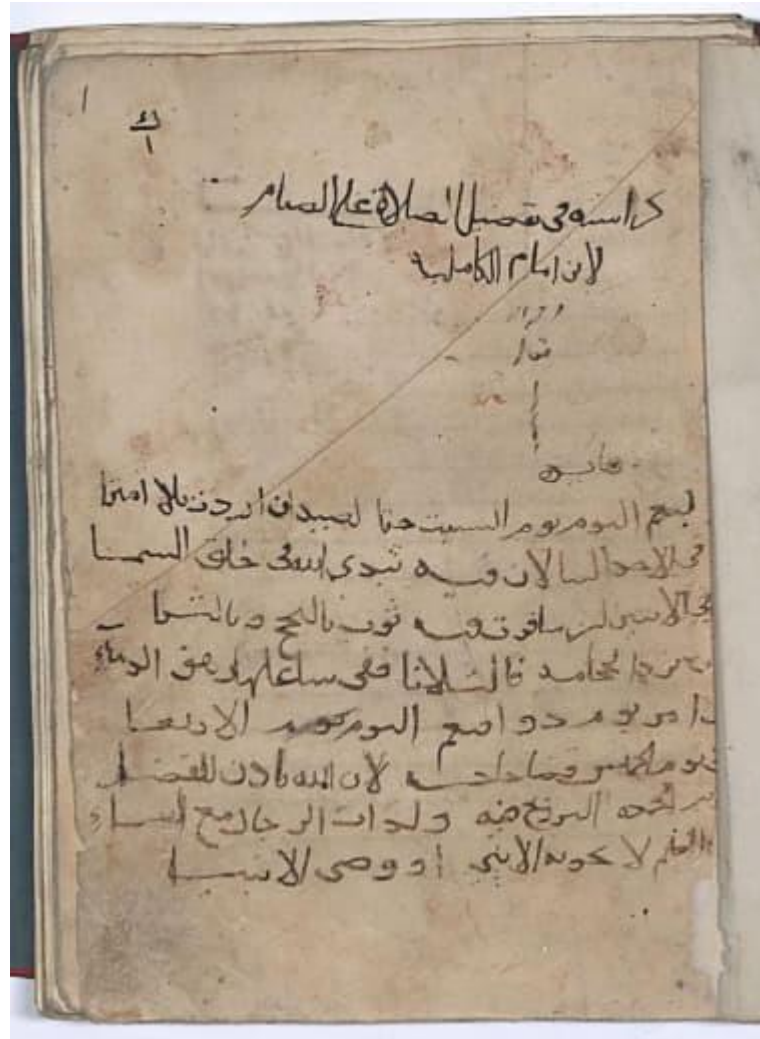 ١
كراسه فى تفضيل الصلاة على الصيام
لابن امام الكاملية
لنعم اليوم يوم السبت حقا لصيد ان اردت بلا امترا
فى الاحد البنا لان فيه تبدى الله فى خلق السما
فى الاثنين ان سافرت فيه تؤب بالنجح وبالثرا
يرد الحجامه فالثلاثا ففى ساعاتها هرق الدماء
يوم دوا فنعم اليوم يوم الاربعا
يوم الخميس قضا حاجه لان الله ياذن للقضا
الجمعه التزويج فيه ولذات الرجال مع النساء
العلم لا يحويه الا نبى او وصى الانبيا